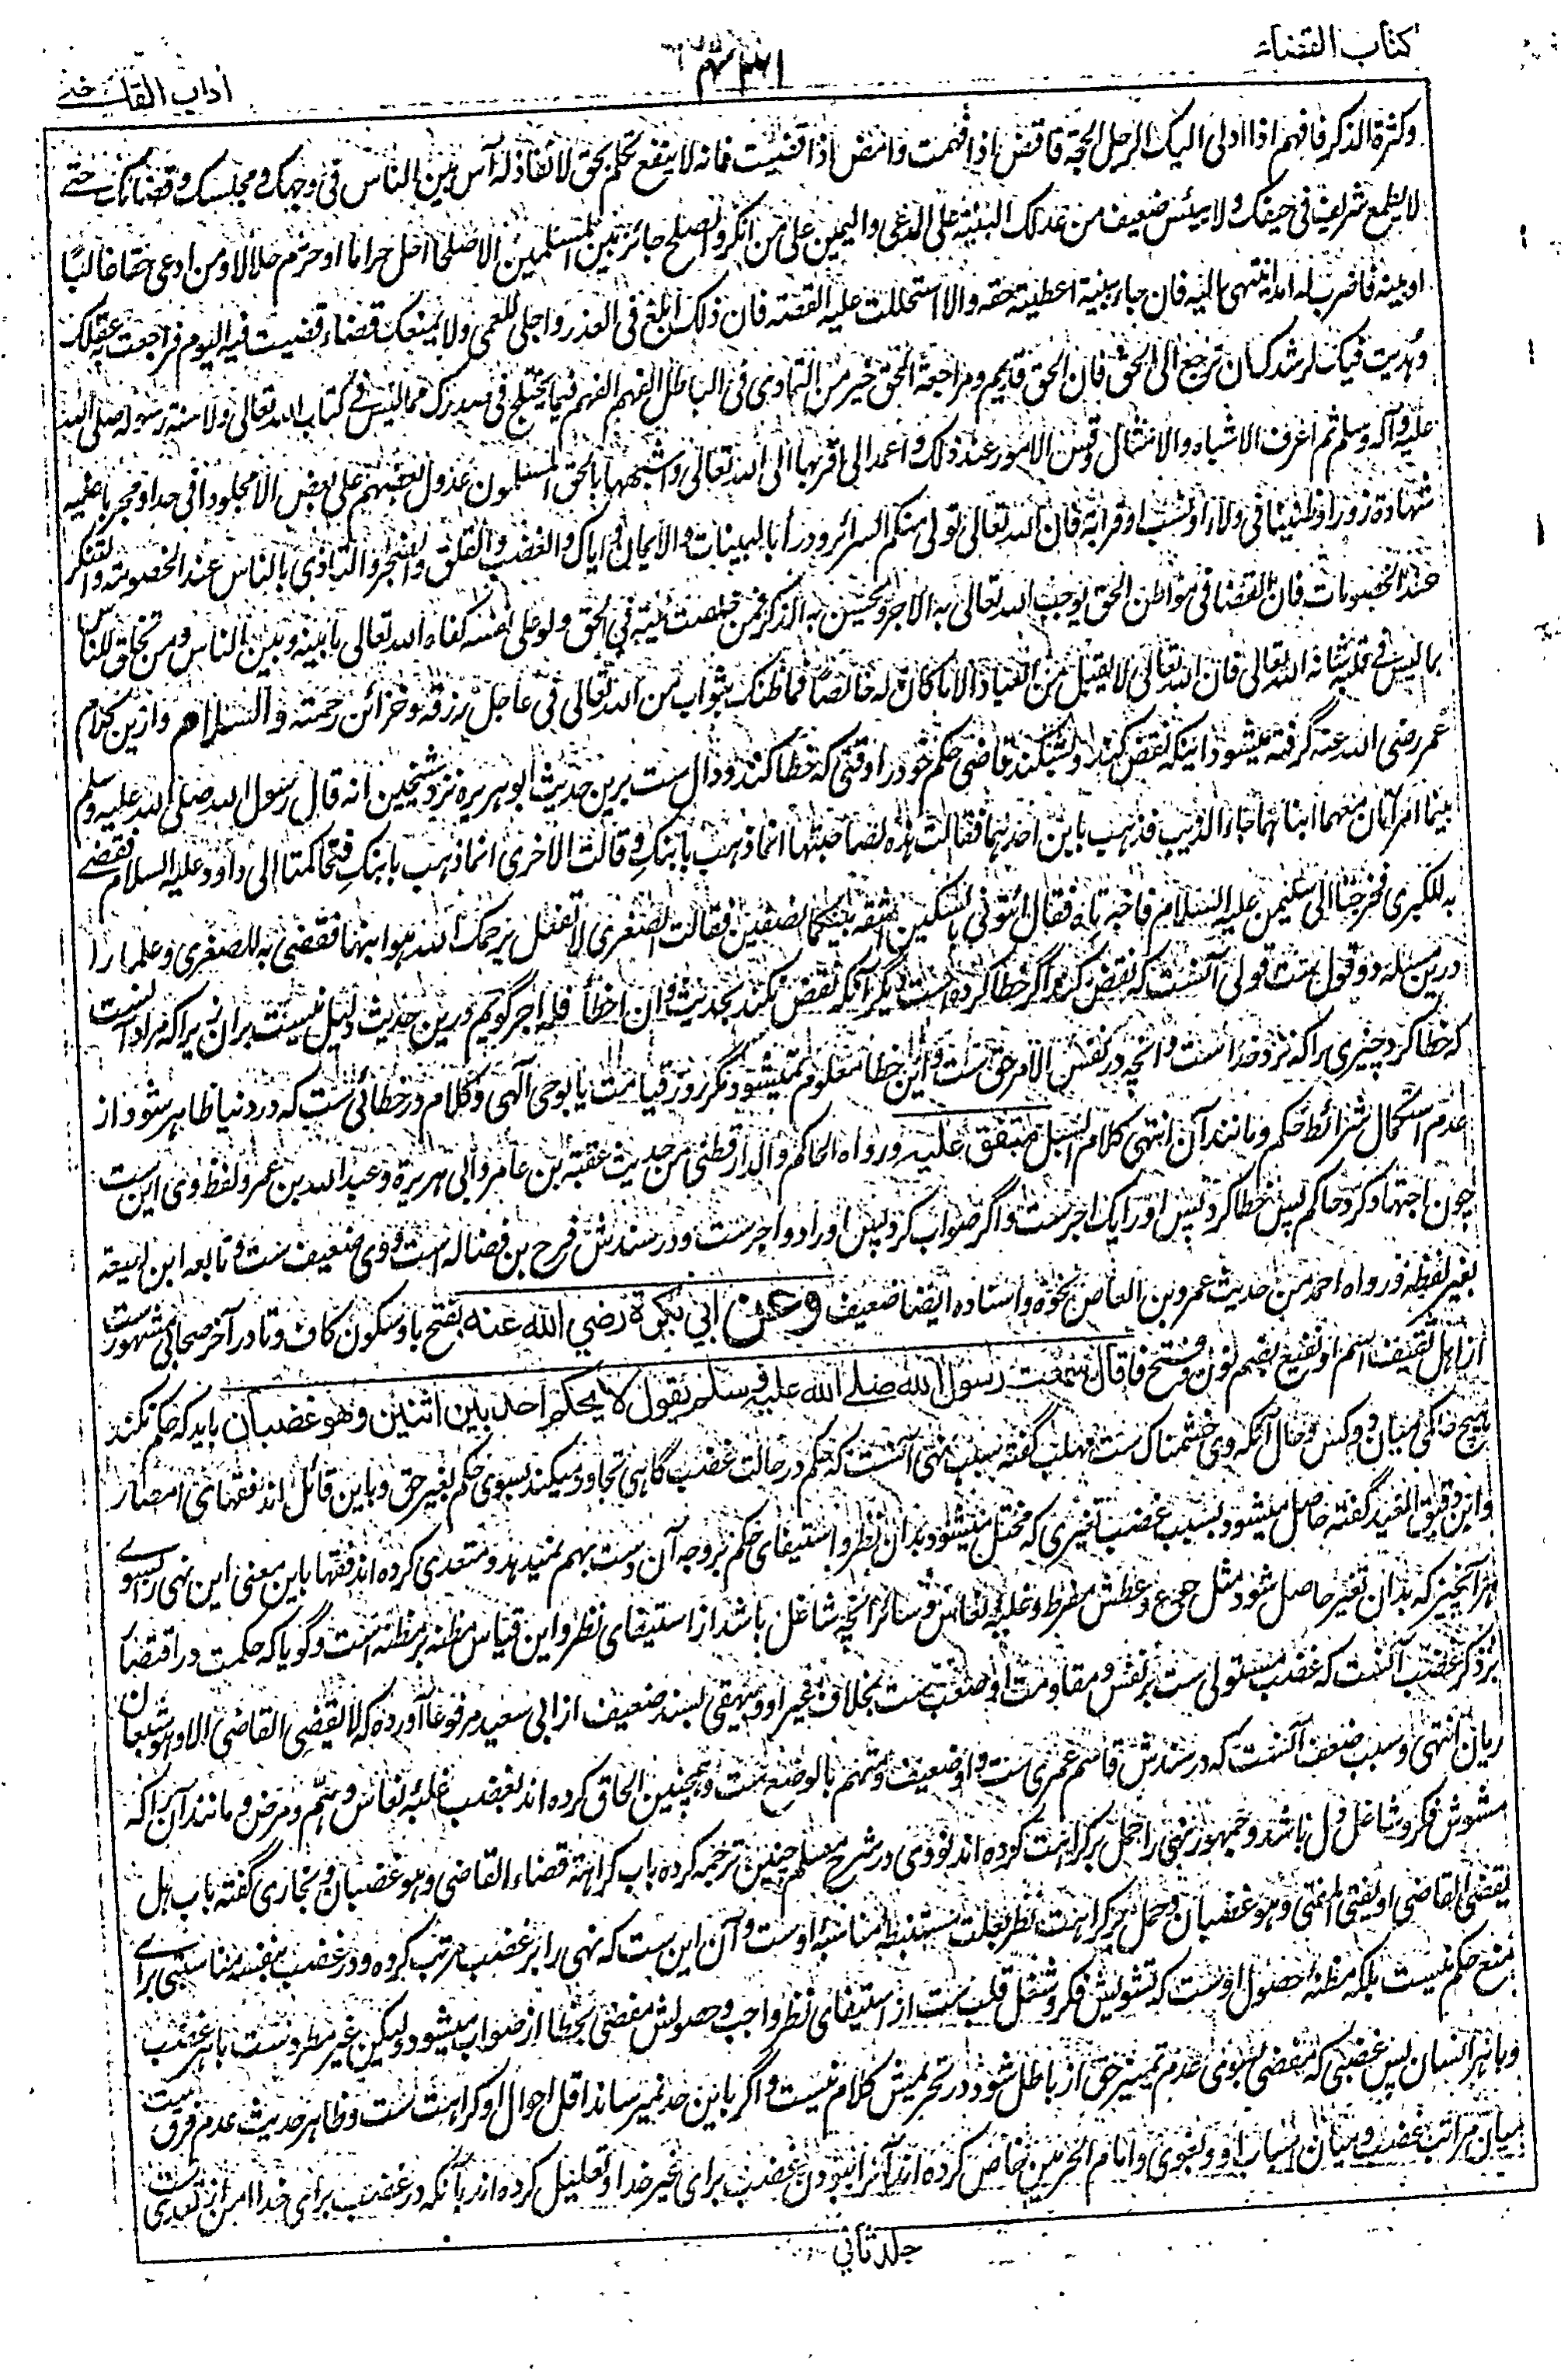 كتاب القضاء
آداب القاضے
وكثرة الذكر فافهم اذا ادلى اليك الرجل الحجة فاقض اذا فهمت وامض اذا قضيت فانه لا ينفع تكلم بحق لا نفاذ له آس بين الناس فى وجهك و مجلسك و قضائك حتے
لا يطمع شريف فى حيفك ولا ييئس ضعيف من عدلك البينة على المدعى واليمين على من انكر والصلح جائز بين المسلمين الا صلحا احل حراما او حرّم حلالا ومن ادعى حقا غائبًا
او بينة فاضرب له امدا ينتهى اليه فان جاء ببينة اعطيته حقه والا استحللت عليه القضية فان ذلك ابلغ فى العذر واجلى للعمى ولا يمنعك قضاء قضيت فيه اليوم فراجعت به عقلك
وهُديت فيه لرشدك ان ترجع الى الحق فان الحق قديم ومراجعة الحق خير من التمادى فى الباطل الفهم الفهم فيما يختلج فى صدرك مما ليس فے كتاب الله تعالى ولا سنة رسوله صلى الله
عليه وآله وسلم ثم اعرف الاشباه والامثال وقس الامور عند ذلك واعمد الى اقربها الى الله تعالى واشبهها بالحق المسلمون عدول بعضهم على بعض الا مجلودا فى حد او مجربا عليه
شهادة زور او ظنينا فى ولاء او نسب او قرابة فان الله تعالى تولى منكم السرائر ودرأ بالبينات والايمان واياك والغضب والقلق والضجر والتأذى بالناس عند الخصومة والتنكر
عند الخصومات فان القضا فى مواطن الحق يوجب الله تعالى به الاجر ويحسن به الذكر فمن خلصت نيته فى الحق ولو على نفسه كفاه الله تعالى ما بينه وبين الناس ومن تخلق للناس
بما ليس فے قلبه شانه الله تعالى فان الله تعالى لا يقبل من العباد الا ما كان له خالصًا فما ظنك بثواب من الله تعالى فى عاجل رزقه وخزائن رحمته والسلام وازين كلام
عمر رضى الله عنه گرفته ميشود اينكه نقض كند و بشكند قاضى حكم خود را وقتى كه خطا كند و دال ست برين حديث ابو هريره نزد شيخين انه قال رسول الله صلى الله عليه وسلم
بينما امرأتان معهما ابناهما جاء الذئب فذهب بابن احدهما فقالت هذه لصاحبتها انما ذهب بابنكِ وقالت الاخرى انما ذهب بابنكِ فتحاكمتا الى داود عليه السلام فقضے
به للكبرى فخرجتا الى سليمن عليه السلام فاخبرتاه فقال ائتونى بالسكين اشقه بينكما نصفين فقالت الصغرى لا تفعل يرحمك الله هو ابنها فقضى به للصغرى وعلما را
درين مسئله دو قول ست قولى آنست كه نقض كند اگر خطا كرده است ديگر آنكه نقض نكند بحديث وان اخطأ فله اجر گويم درين حديث دليل نيست بران زيرا كه مراد آنست
كه خطا كرد چيزى را كه نزد خدا ست وآنچه در نفس الامر حق ست واين خطا معلوم نميشود مگر روز قيامت يا بوحى الٓهى وكلام در خطائى ست كه در دنيا ظاهر شود از
عدم استكمال شرائط حكم ومانند آن انتهى كلام السبل متفق عليه ورواه الحاكم والدارقطنى من حديث عقبة بن عامر وابى هريرة وعبدالله بن عمر ولفظ وى اين ست
چون اجتهاد كرد حاكم پس خطا كرد پس او را يك اجرست واگر صواب كرد پس او را دو اجرست ودر سندش فرح بن فضاله است و وى ضعيف ست وتابعه ابن لهيعة
بغير لفظه ورواه احمد من حديث عمرو بن العاص بنحوه واسناده ايضا ضعيف وعن ابي بكرة رضي الله عنه بفتح با وسكون كاف وتا در آخر صحابى مشهور ست
از اهل ثقيف اسم او نفيع بضم نون وفتح فا قال سمعت رسول الله صلے الله عليه وسلم يقول لا يحكم احد بين اثنين وهو غضبان بايد كه حكم نكند
هيچ حاكمى ميان دو كس وحال آنكه وى خشمناك ست مهلب گفته سبب نهى آنست كه حكم در حالت غضب گاهى تجاوز ميكند بسوى حكم بغير حق وباين قائل اند فقهاى امصار
وابن دقيق العيد گفته حاصل ميشود بسبب غضب تغيرى كه مختل ميشود بدان نظر واستيفاى حكم بر وجه آن دست بهم نميدهد ومتعدى كرده اند فقها باين معنى اين نهى را بسوے
هر آنچيز كه بدان تغير حاصل شود مثل جوع وعطش مفرط وغلبهٔ نعاس وسائر آنچه شاغل باشد از استيفاى نظر واين قياس مظنه بر مظنه است وگويا كه حكمت در اقتصار
بر ذكر غضب آنست كه غضب مستولى ست بر نفس ومقاومت او صعب ست بخلاف غير او وبيهقى بسند ضعيف از ابى سعيد مرفوعا آورده كه لا يقضى القاضى الا وهو شبعان
ريان انتهى وسبب ضعف آنست كه در سندش قاسم عمرى ست واو ضعيف ومتهم بالوضع ست وهمچنين الحاق كرده اند بغضب غلبهٔ نعاس وهمّ ومرض ومانند آن را كه
مشوش فكر وشاغل دل باشد وجمهور نهى را حمل بر كراهت كرده اند نووى در شرح مسلم چنين ترجمه كرده باب كراهة قضاء القاضى وهو غضبان وبخارى گفته باب هل
يقضى القاضى او يفتى المفتى وهو غضبان وحمل بر كراهت نظر بعلت مستنبطه مناسبهٔ اوست وآن اين ست كه نهى را بر غضب مرتب كرده ودر غضب بنفسه مناسبتى براے
منع حكم نيست بلكه مظنهٔ حصول اوست كه تشويش فكر وشغل قلب ست از استيفاى نظر واجب وحصولش مفضى بخطا از صواب ميشود وليكن غير مطردست با هر غضب
وبا هر انسان پس غضبى كه مفضى بسوى عدم تمييز حق از باطل شود در تحريمش كلام نيست واگر باين حد نميرساند اقل احوال او كراهت ست وظاهر حديث عدم فرق ست
ميان مراتب غضب وميان اسباب او وبغوى وامام الحرمين خاص كرده اند آنرا ببودن غضب براى غير خدا وتعليل كرده اند بآنكه در غضب براى خدا امن از تعدى ست
جلد ثاني